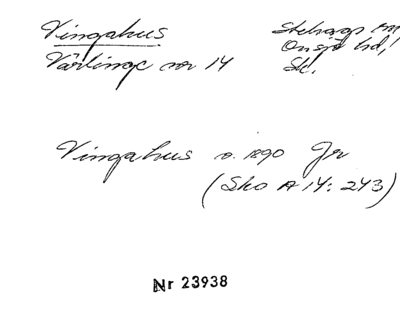 Vingahus
Stehags sn,
Onsjö hd,
Värlinge nr 14
Sk.
Vingahus o. 1890 Jr
(Sko A 14: 243)
Nr 23938